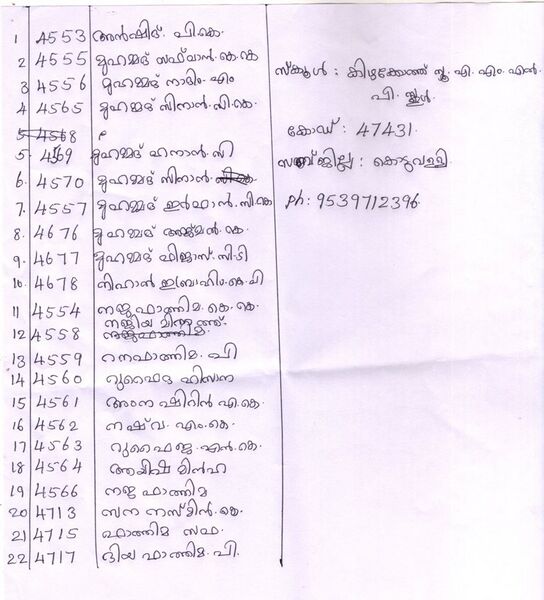 1 4553 അൻഷിദ്. പി.കെ.
2 4555 മുഹമ്മദ് സഫ്വാൻ.കെ.കെ
3 4556 മുഹമ്മദ് നാദിം. എം
4 4565 മുഹമ്മദ് സിനാൻ.സി.കെ.
5 4568
5. 4569 മുഹമ്മദ് ഹനാൻ.സി
6. 4570 മുഹമ്മദ് സിനാൻ.
7. 4557 മുഹമ്മദ് ഇർഫാൻ.സി.കെ
8. 4676 മുഹമ്മദ് അജ്മൽ.കെ.
9. 4677 മുഹമ്മദ് ഫിജാസ്.സി.ടി
10. 4678 നിഹാൽ ഇബ്രാഹിം.കെ.പി
11 4554 നജ ഫാത്തിമ.കെ.കെ.
നജിയ മിന്നത്ത്.
12 4558 നജഫാത്തിമ.
13 4559 റനഫാത്തിമ. പി
14 4560 റുഫൈദ ഹിസാന
15 4561 അംന ഷിറിൻ എ.കെ.
16 4562 നഷ്‌വ. എം.കെ.
17 4563 റുഫൈജ.എൻ.കെ.
18 4564 അയിഷ മിൻഹ
19 4566 നജ ഫാത്തിമ
20 4713 സന നസ്മിൻ.കെ.
21 4715 ഫാത്തിമ സഫ.
22 4717 ദിയ ഫാത്തിമ.പി.
സ്കൂൾ : കിഴക്കോത്ത് ന്യൂ.എ.എം.എൽ.
പി.സ്കൂൾ.
കോഡ് : 47431.
സബ്ജില്ല : കൊടുവള്ളി.
Ph: 9539712396